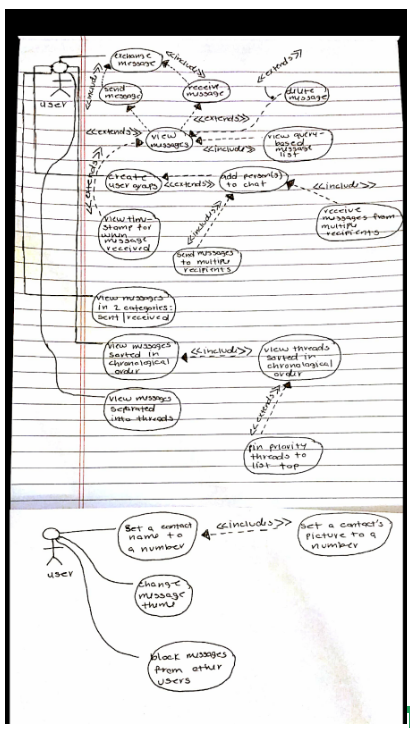 exchange
message
<<includes>>
user
send
message
receive
message
<<extends>>
delete
message
<<extends>>
<<extends>>
view
messages
<<includes>>
view query-
based
message
list
<<extends>>
create
user groups
<<extends>>
add person(s)
to chat
<<includes>>
view time-
stamp for
when
message
received
<<includes>>
receive
messages from
multiple
recipients
send messages
to multiple
recipients
view messages
in 2 categories:
sent/received
view messages
sorted in
chronological
order
<<includes>>
view threads
sorted in
chronological
order
view messages
separated
into threads
<<extends>>
pin priority
threads to
list top
user
set a contact
name to
a number
<<includes>>
set a contact's
picture to a
number
change
message
theme
block messages
from other
users